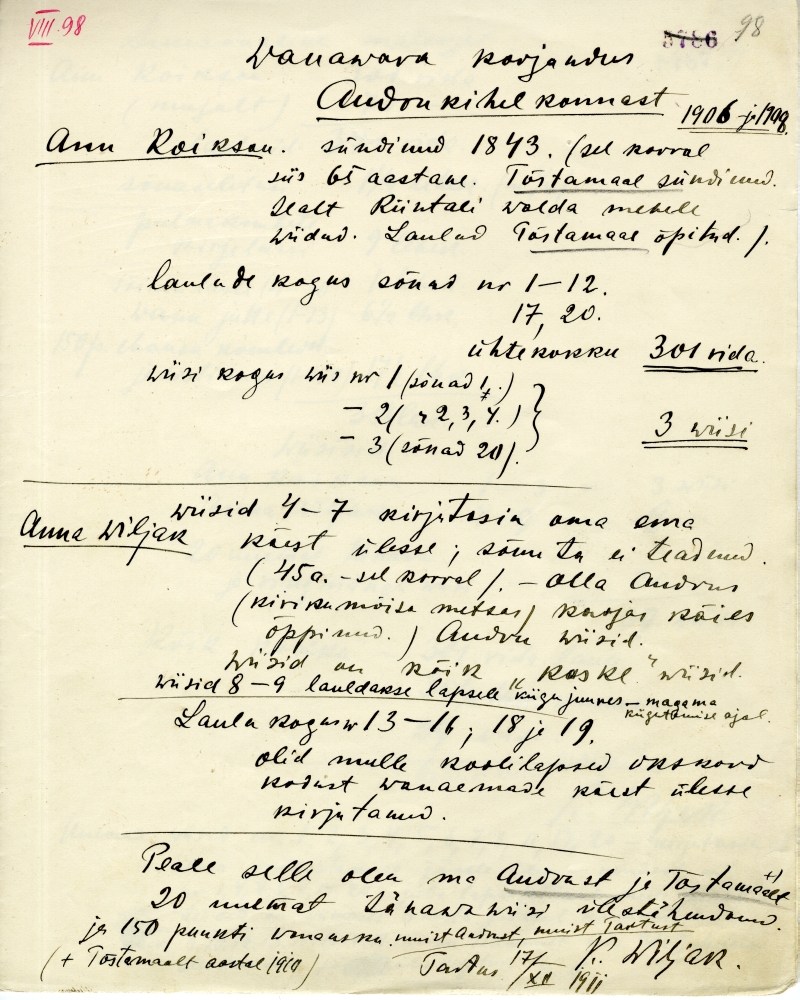 VIII 98
5786 98
Wanawara korjandus
Audru kihelkonnast 1906 ja 1908.
Ann Roikson. sündinud 1843. (sel korral
siis 65 aastane. Tõstamaal sündinud.
sealt Riintali walda mehele
wiidud. Laulud Tõstamaal õpitud.).
laulude kogus sõnad nr 1–12.
17, 20.
ühtekokku 301 rida.
wiisi kogus wiis nr 1 (sõnad 1,)
– 2 ( " 2, 3, 4.)
– 3 (sõnad 20).
3 wiisi
Anna Wiljak
wiisid 4–7 kirjutasin oma ema
käest ülesse; sõnu ta ei teadnud.
(45 a. – sel korral). – olla Audrus
(kirikumõisa metsas) karjas käies
õppinud.) Audru wiisid.
wiisid on kõik "kaske" wiisid.
wiisid 8–9 lauldakse lapsele "kiigu juures – magama
kiigutamise ajal.
Laulu kogus nr 13–16, 18 ja 19.
olid mulle koolilapsed ükskord
kodust wanaemade käest ülesse
kirjutanud.
Peale selle olen ma Audrust ja Tõstamaalt +)
20 uuemat tänawawiisi ülestähendanud.
ja 150 punkti wanausku. muist Audrust, muist Tartust
(+ Tõstamaalt aastal 1910)
Tartus 17/XII 1911
K. Wiljak.